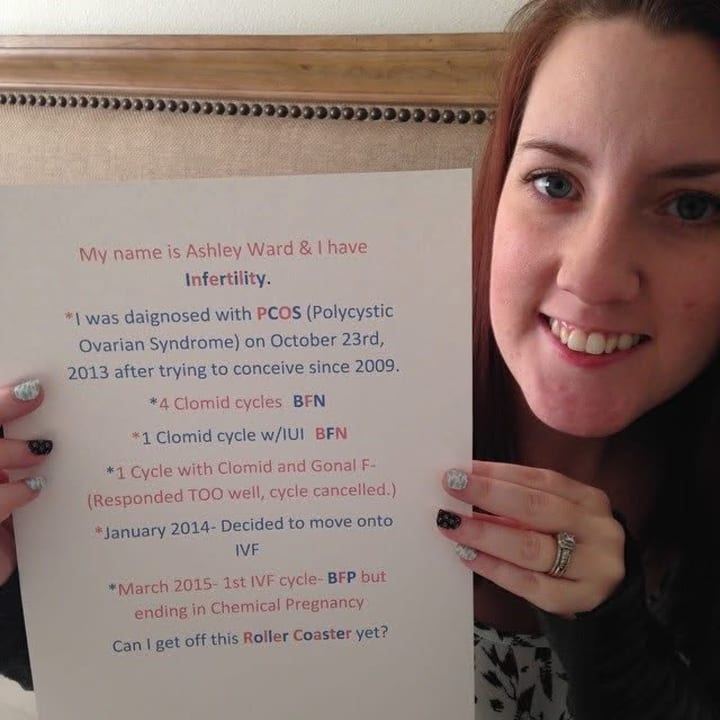 My name is Ashley Ward & I have
Infertility.
*I was daignosed with PCOS (Polycystic
Ovarian Syndrome) on October 23rd,
2013 after trying to conceive since 2009.
*4 Clomid cycles BFN
*1 Clomid cycle w/IUI BFN
*1 Cycle with Clomid and Gonal F-
(Responded TOO well, cycle cancelled.)
*January 2014- Decided to move onto
IVF
*March 2015- 1st IVF cycle- BFP but
ending in Chemical Pregnancy
Can I get off this Roller Coaster yet?